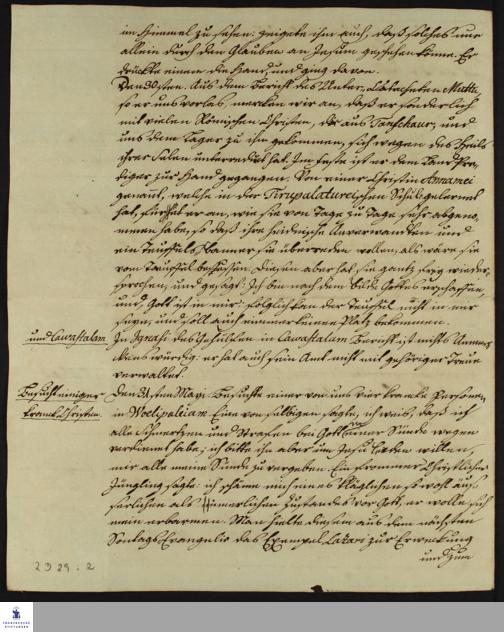 im Himmel zu sehen: zeigete ihr auch, daß solches nur
allein durch den Glauben an Jesum geschehen könne. Er
drückte einem die Hand, und ging davon.
Den 30sten. Aus dem Bericht des Unter-Catecheten Muttu,
so er uns vorlas, merken wir an, daß er sonderlich
mit vielen Römischen Christen, die aus Tanschaur, und
aus dem Lager zu ihm gekommen, sich wegen des Heils
ihrer Selen unterredet hat. Im Feste ist er dem Land-Pre-
diger zur Hand gegangen. Von einer Christin Annamei
genant, welche in der Tirupalatureischen Schule gelernet
hat, führet er an, wie sie von Tage zu Tage sehr abgenom-
men habe, so daß ihre heidnische Anverwandten und
ein Teuffelsbanner sie überreden wollen, als wäre sie
vom Teuffel besessen. Diesen aber hat sie gantz frey wieder-
sprochen, und gesagt: Ich bin nach dem Bilde Gottes erschaffen,
und Gott ist in mir: folglich kan der Teuffel nicht in mir
seyn, und soll auch nimmer keinen Platz bekommen.
und Cawastalam. In Ignasi des Gehülfen in Cawastalam Bericht ist nichts Anmerckens
würdig: er hat auch sein Amt nicht mit gehöriger Treue
verwaltet.
Besuch einiger Den 31sten May. Besuchte einer von uns vier krancke Personen,
kranck. Christen. in Woelipaleiam. Eine von selbigen sagte, ich weis, daß ich
alle Schmertzen und Strafen bei Gott meiner Sünde wegen
verdienet habe; ich bitte ihn aber um Jesu Leiden willen,
mir alle meine Sünde zu vergeben. Ein frommer Christlicher
Jüngling sagte: ich schäme mich eines kläglichen so wohl äus-
serlichen als innerlichen Zustandes vor Gott, er wolle sich
mein erbarmen. Man hielte diesen aus dem nächsten
Sontags-Evangelio das Exempel Lazari zur Erweckung
und zum
2 J 29 : 2
FRANCKESCHE
STIFTUNGEN